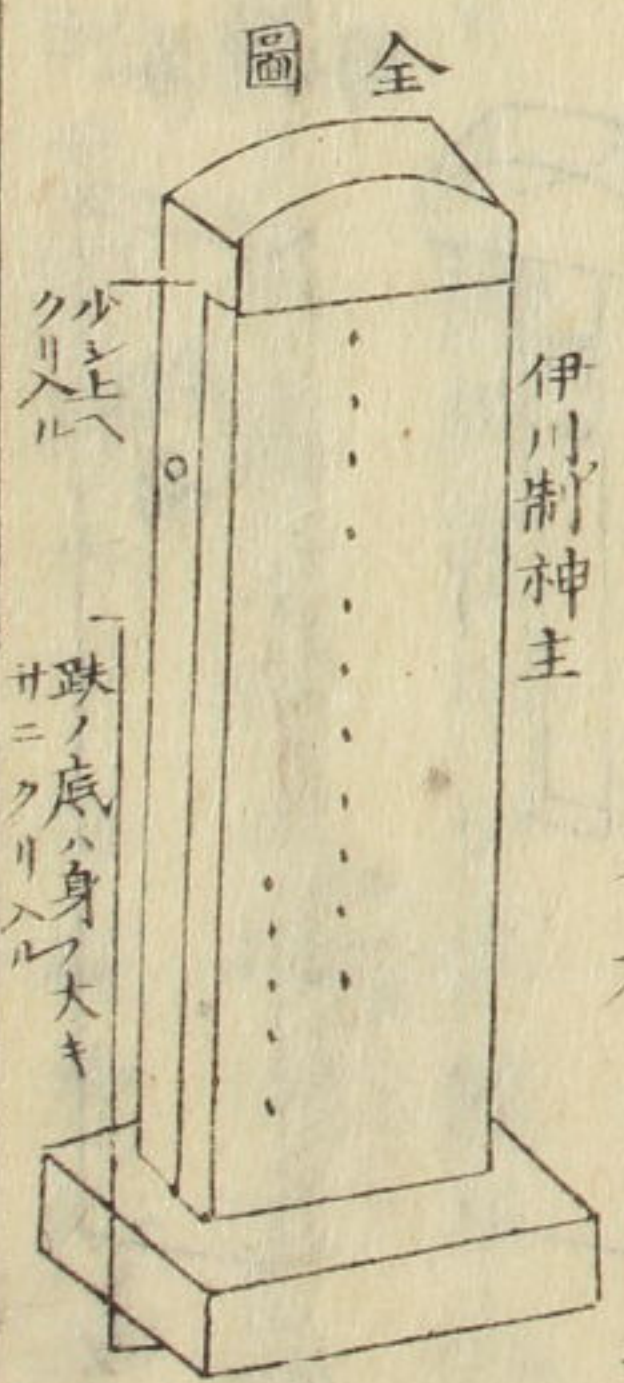 全圖
伊川制神主
少シ上ヘ
クリ入ル
趺ノ底ハ身ノ大キ
サニクリ入ル